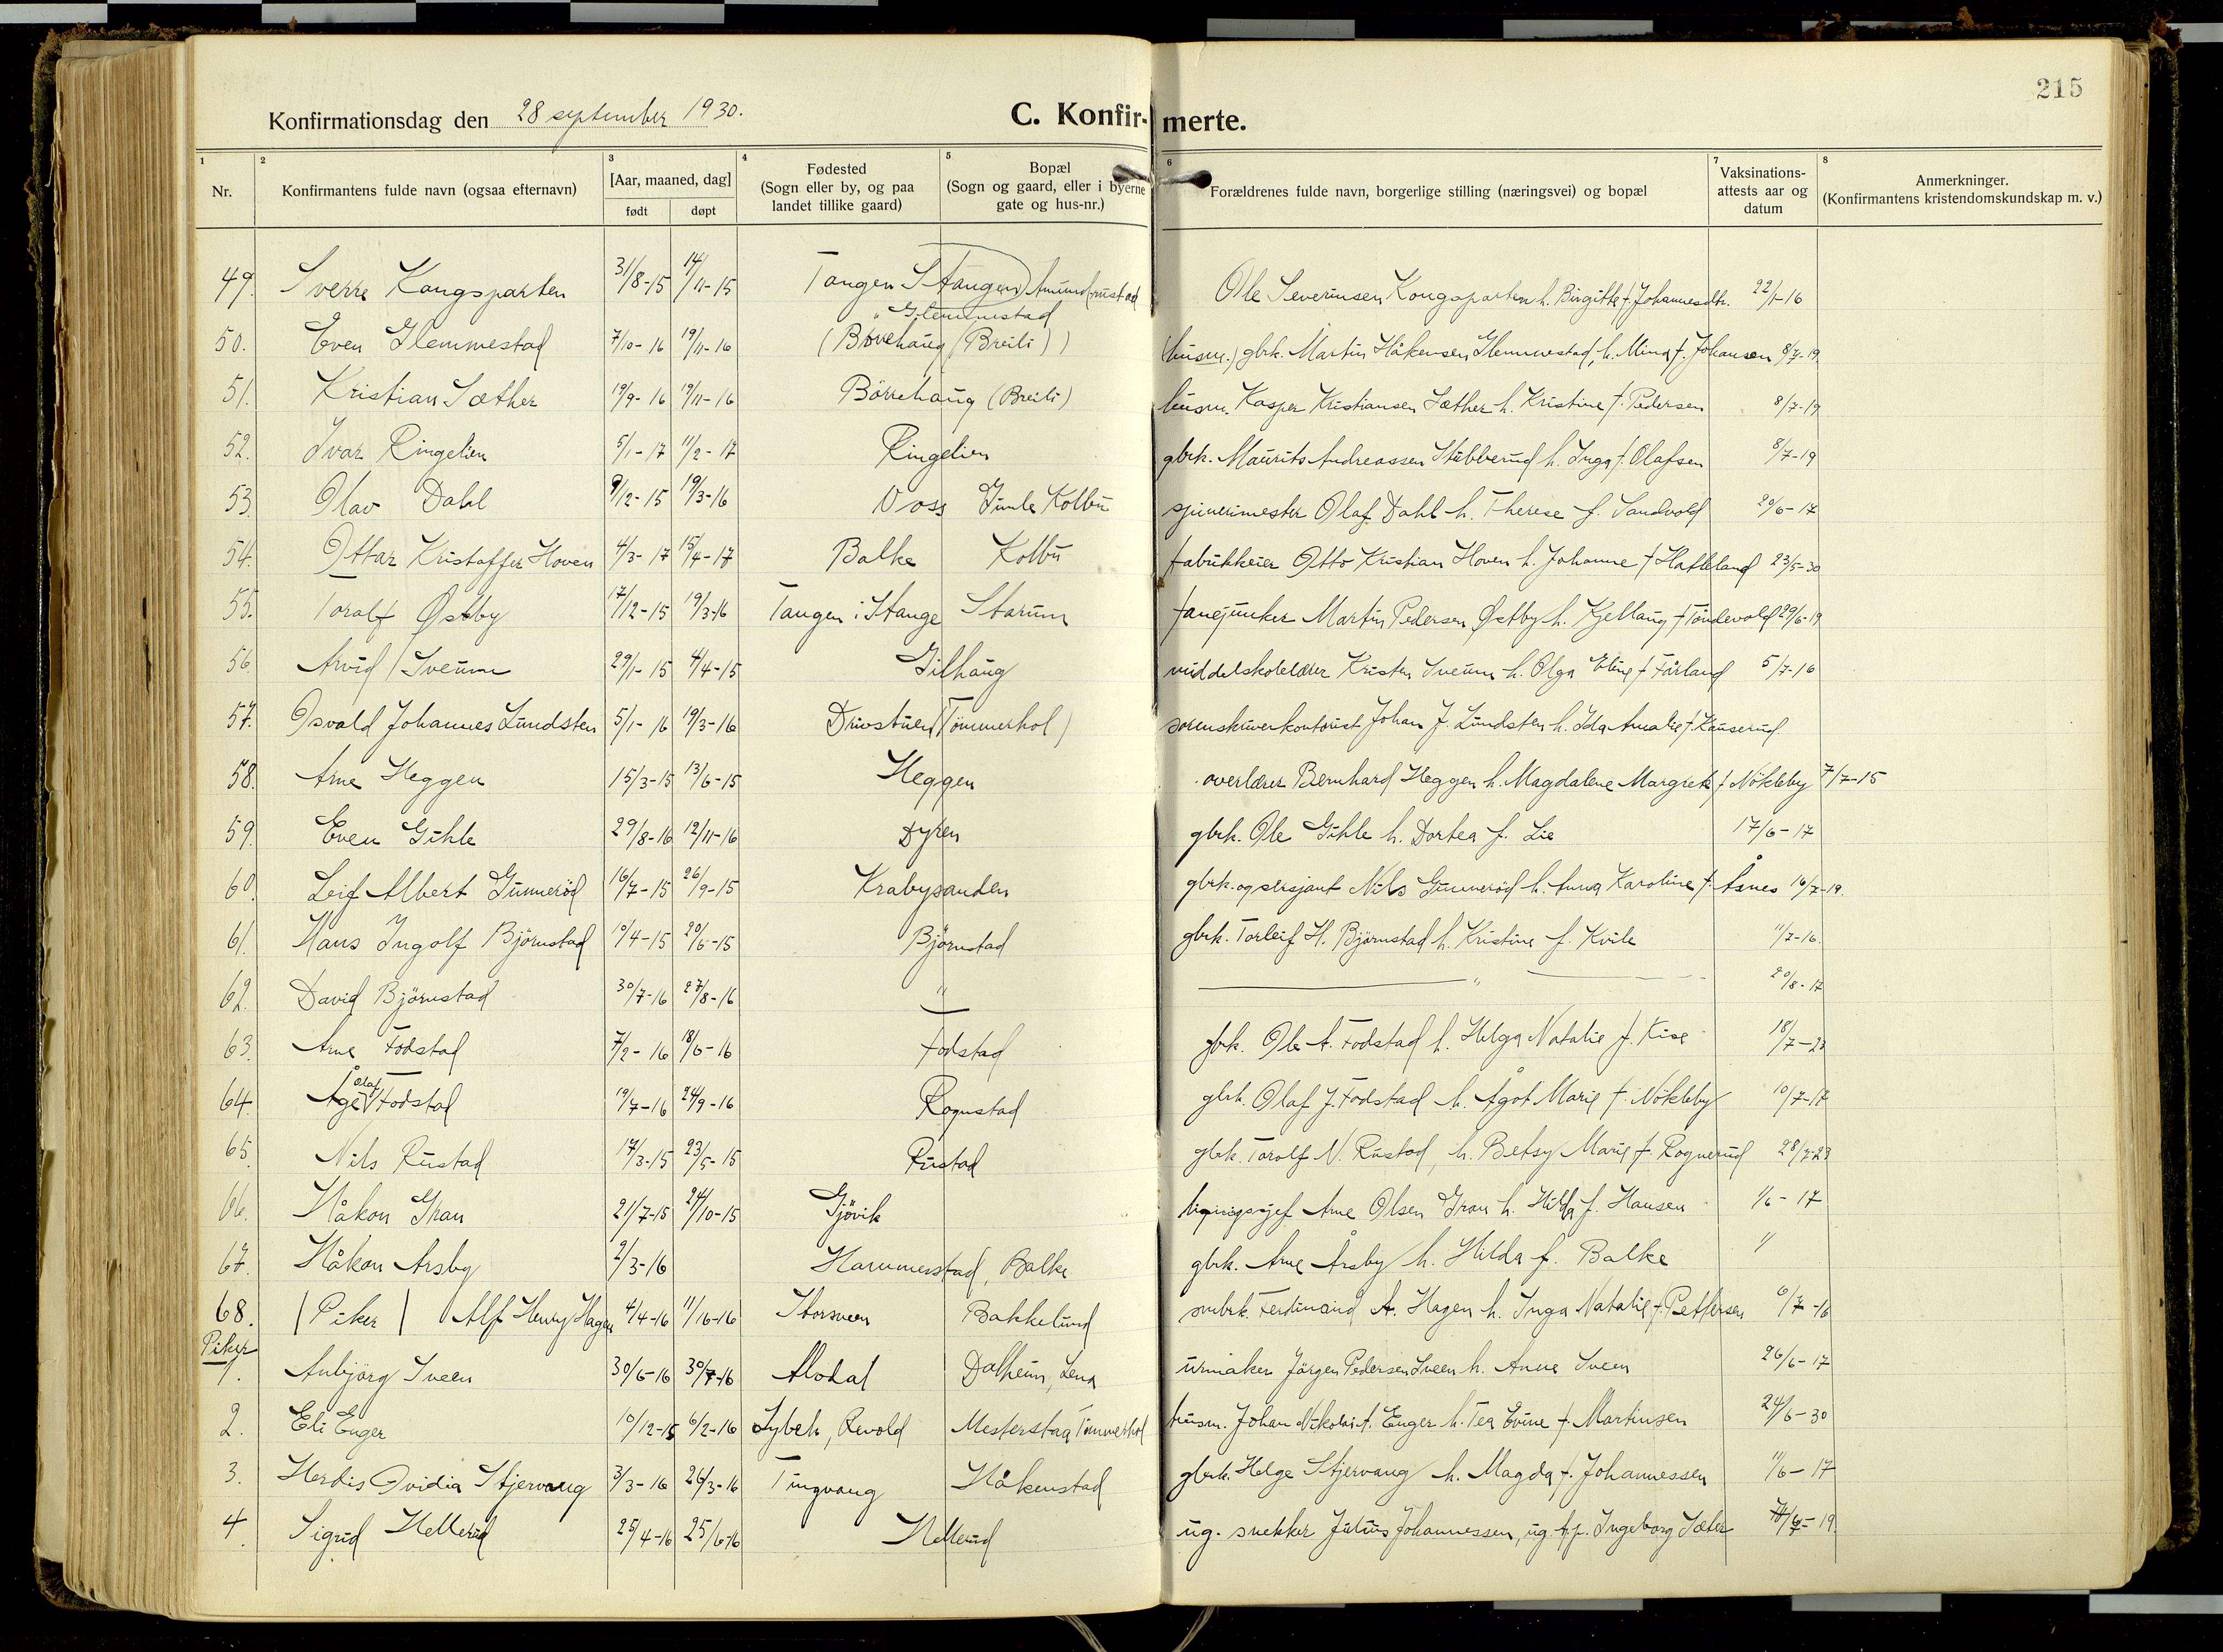 215
Konfirmationsdag den 28 september 1930. C. Konfirmerte.
1 2 3 4 5 6 7 8
Nr. Konfirmantens fulde navn (ogsaa efternavn) [Aar, maaned, dag] født døpt Fødested (Sogn eller by, og paa landet tillike gaard) Bopæl (Sogn og gaard, eller i byerne gate og hus-nr.) Forældrenes fulde navn, borgerlige stilling (næringsvei) og bopæl Vaksinations-attests aar og datum Anmerkninger. (Konfirmantens kristendomskundskap m. v.)
49. Sverre Kongsparten 31/8-15 14/11-15 Tangen Stangen Amundrustad Ole Severinsen Kongsparten h. Birgitte f. Johannesdtr. 22/1-16
50. Even Glemmestad 7/10-16 19/11-16 " Glemmestad (Børrehaug (Breili)) (husm.) gbrk. Martin Håkensen Glemmestad, h. Mina f. Johansen 8/7-19
51. Kristian Sæther 19/9-16 19/11-16 Börrehaug (Breili) husm. Kasper Kristiansen Sæther h. Kristine f. Pedersen 8/7-19
52. Ivar Ringelien 5/1-17 11/2-17 Ringelien gbrk. Maurits Andreassen Stubberud h. Inga f. Olafsen 8/7-19
53. Olav Dahl 9/12-15 19/3-16 Voss Kolbu spinerimester Olaf Dahl h. Therese f. Sandvold 20/6-17
54. Ottar Kristoffer Hoven 4/3-17 15/4-17 Balke Kolbu fabrikkeier Otto Kristian Hoven h. Johanne f Hatleland 23/5-30
55. Toralf Østby 17/12-15 19/3-16 Tangen i Stange Starum fanejunker Martin Pedersen Østby h. Kjellaug f Töndevold 29/6-19
56. Arvid Sveum 29/1-15 4/4-15 Gilhaug middelskolelærer Kristen Sveum h. Olga Eline f Fårland 5/7-16
57. Osvald Johannes Lundsten 5/1-16 19/3-16 Drivstuen (Tömmerhol) sorenskriverkontorist Johan J. Lundsten h. Ida Amalie f. Kauserud
58. Arne Heggen 15/3-15 13/6-15 Heggen overlærer Bernhard Heggen h. Magdalene Margrete f Nökleby 7/7-15
59. Even Gihle 29/8-16 12/11-16 Dyren gbrk. Ole Gihle h. Dortea f. Lie 17/6-17
60. Leif Albert Gunneröd 16/7-15 26/9-15 Krabysanden gbrk. og sersjant Nils Gunneröd h. Anna Karoline f. Åsnes 16/7-19.
61. Hans Ingolf Björnstad 10/4-15 20/6-15 Björnstad gbrk. Torleif H. Björnstad h. Kristine f. Kvile 11/7-16.
62. David Björnstad 30/7-16 27/8-16 " " 20/8-17
63. Arne Fodstad 7/2-16 18/6-16 Fodstad gbrk. Ole A. Fodstad h. Helga Natalie f. Kise 18/7-23
64. Åge Olaf Fodstad 19/7-16 24/9-16 Rognstad gbrk. Olaf J. Fodstad h. Ågot Marie f. Nökleby 10/7-17
65. Nils Rustad 17/3-15 23/5-15 Rustad gbrk. Torolf N. Rustad, h. Betsy Marie f. Rognerud 28/7-23
66. Håkon Gran 21/7-15 24/10-15 Gjövik Arne Olsen Gran h. Hilda f. Hansen 1/6-17
67. Håkon Arsby 2/3-16 Hammerstad, Balke gbrk. Arne Årsby h. Hilda f. Balke "
68. (Piker) Alf Henry Hagen 4/4-16 11/16-16 Storsveen Bakkelund smbrk. Ferdinand A. Hagen h. Inga Natalie f. Pettersen 6/7-16
Piker
1. Anbjörg Sveen 30/6-16 30/7-16 Alodal Dalheim, Lena urmaker Jörgen Pedersen Sveen h. Anne Sveen 26/6-17
2. Eli Enger 10/12-15 6/2-16 Lybek, Revold Mesterstua Tömmerhol husm. Johan Nikolai A. Enger h. Tea Evine f. Martinsen 24/6-30
3. Herdis Ovidia Stjervang 3/3-16 26/3-16 Tingvang Håkenstad gbrk. Helge Stjervang h. Magda f. Johannessen 11/6-17
4. Sigrid Hellerud 25/4-16 25/6-16 Hellerud ug. snekker Julius Johannessen, ug. Ingeborg Sæter 19.